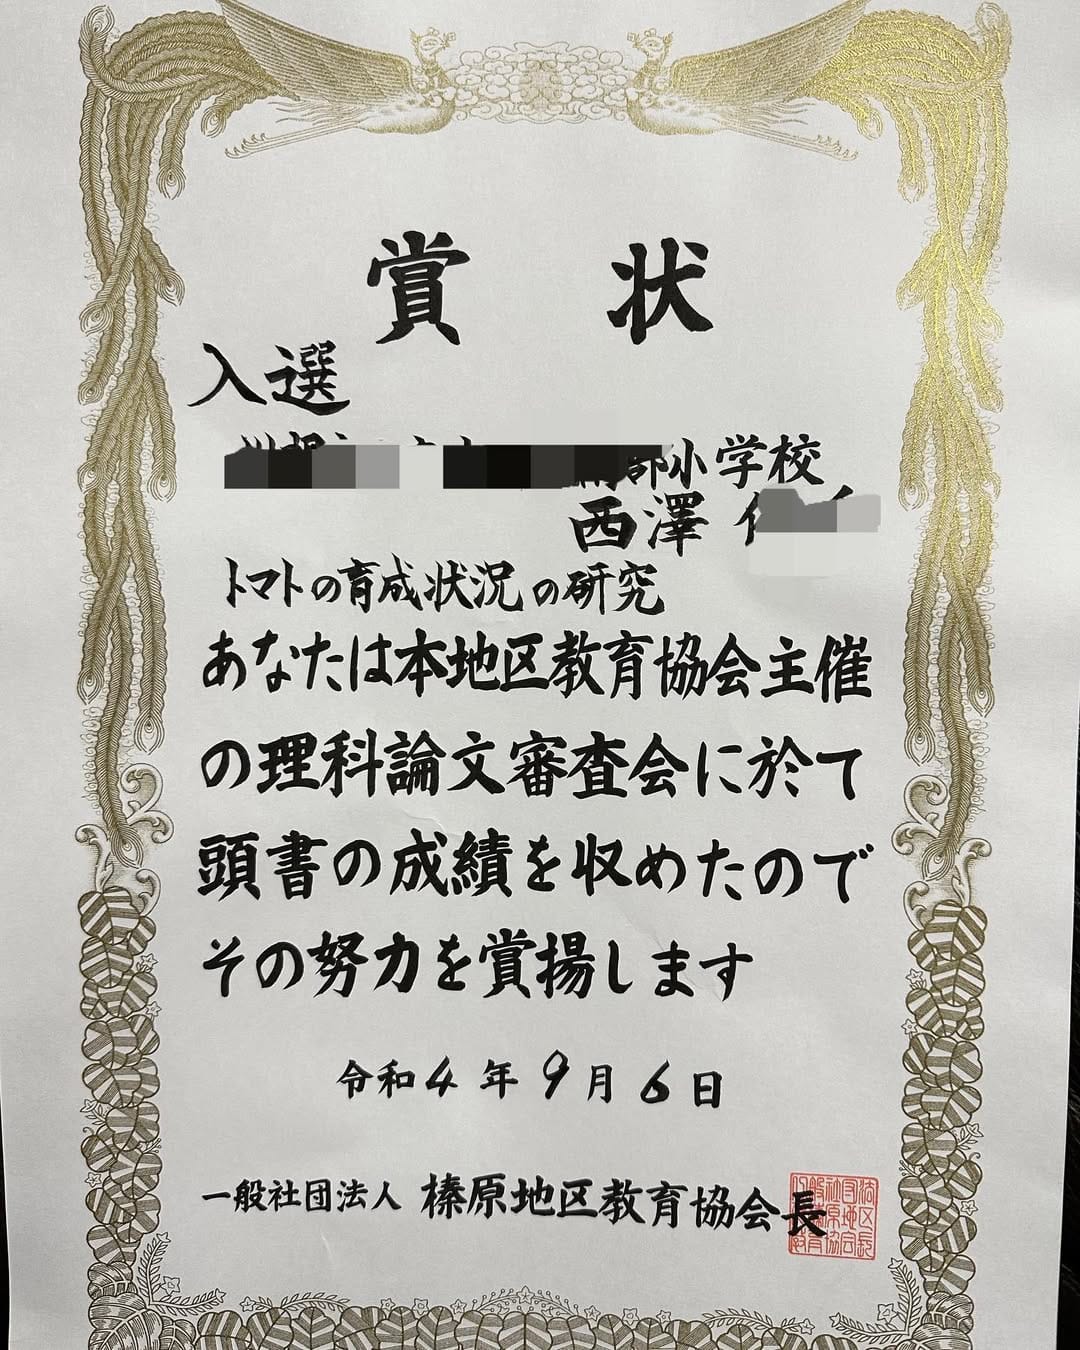 賞状
入選
部小学校
西澤
トマトの育成状況の研究
あなたは本地区教育協会主催
の理科論文審査会に於て
頭書の成績を収めたので
その努力を賞揚します
令和4年9月6日
一般社団法人 榛原地区教育協会長